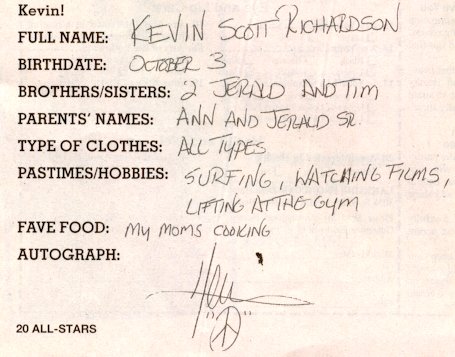 Kevin!
FULL NAME: KEVIN SCOTT RICHARDSON
BIRTHDATE: OCTOBER 3
BROTHERS/SISTERS: 2 JERALD AND TIM
PARENTS' NAMES: ANN AND JERALD SR.
TYPE OF CLOTHES: ALL TYPES
PASTIMES/HOBBIES: SURFING, WATCHING FILMS,
LIFTING AT THE GYM
FAVE FOOD: MY MOMS COOKING
AUTOGRAPH:
20 ALL-STARS